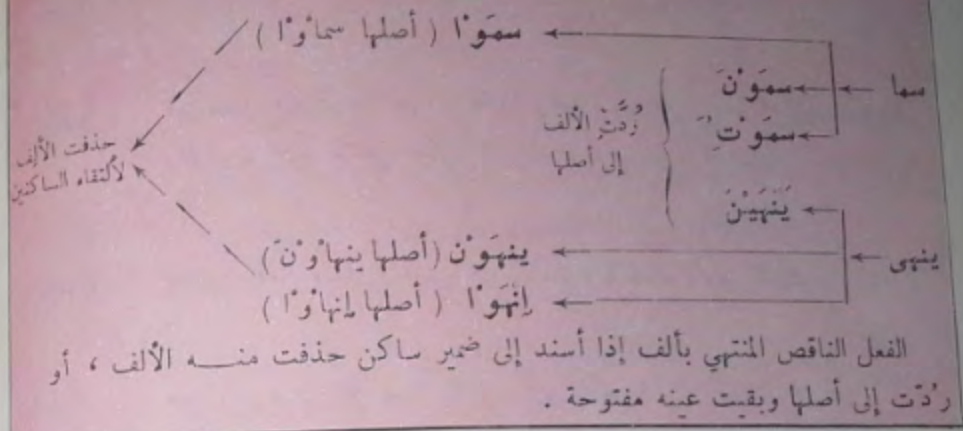 سمَوْا ( أصلها سماْوْا )
سما
سمَوْنَ
سمَوْتُِ
رُدَّتْ الألف
إلى أصلها
حذفت الألف
لالتقاء الساكنين
يَنهَيْنَ
ينهى
ينهَوْن (أصلها ينهاْوْنَ )
اِنْهَوْا ( أصلها اِنهاْوْا )
الفعل الناقص المنتهي بألف إذا أسند إلى ضمير ساكن حذفت منه الألف ، أو
رُدّت إلى أصلها وبقيت عينه مفتوحة .